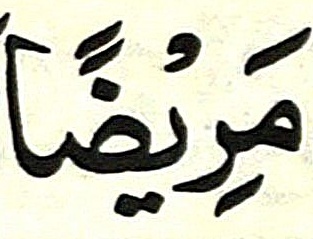 مَرِيْضًا